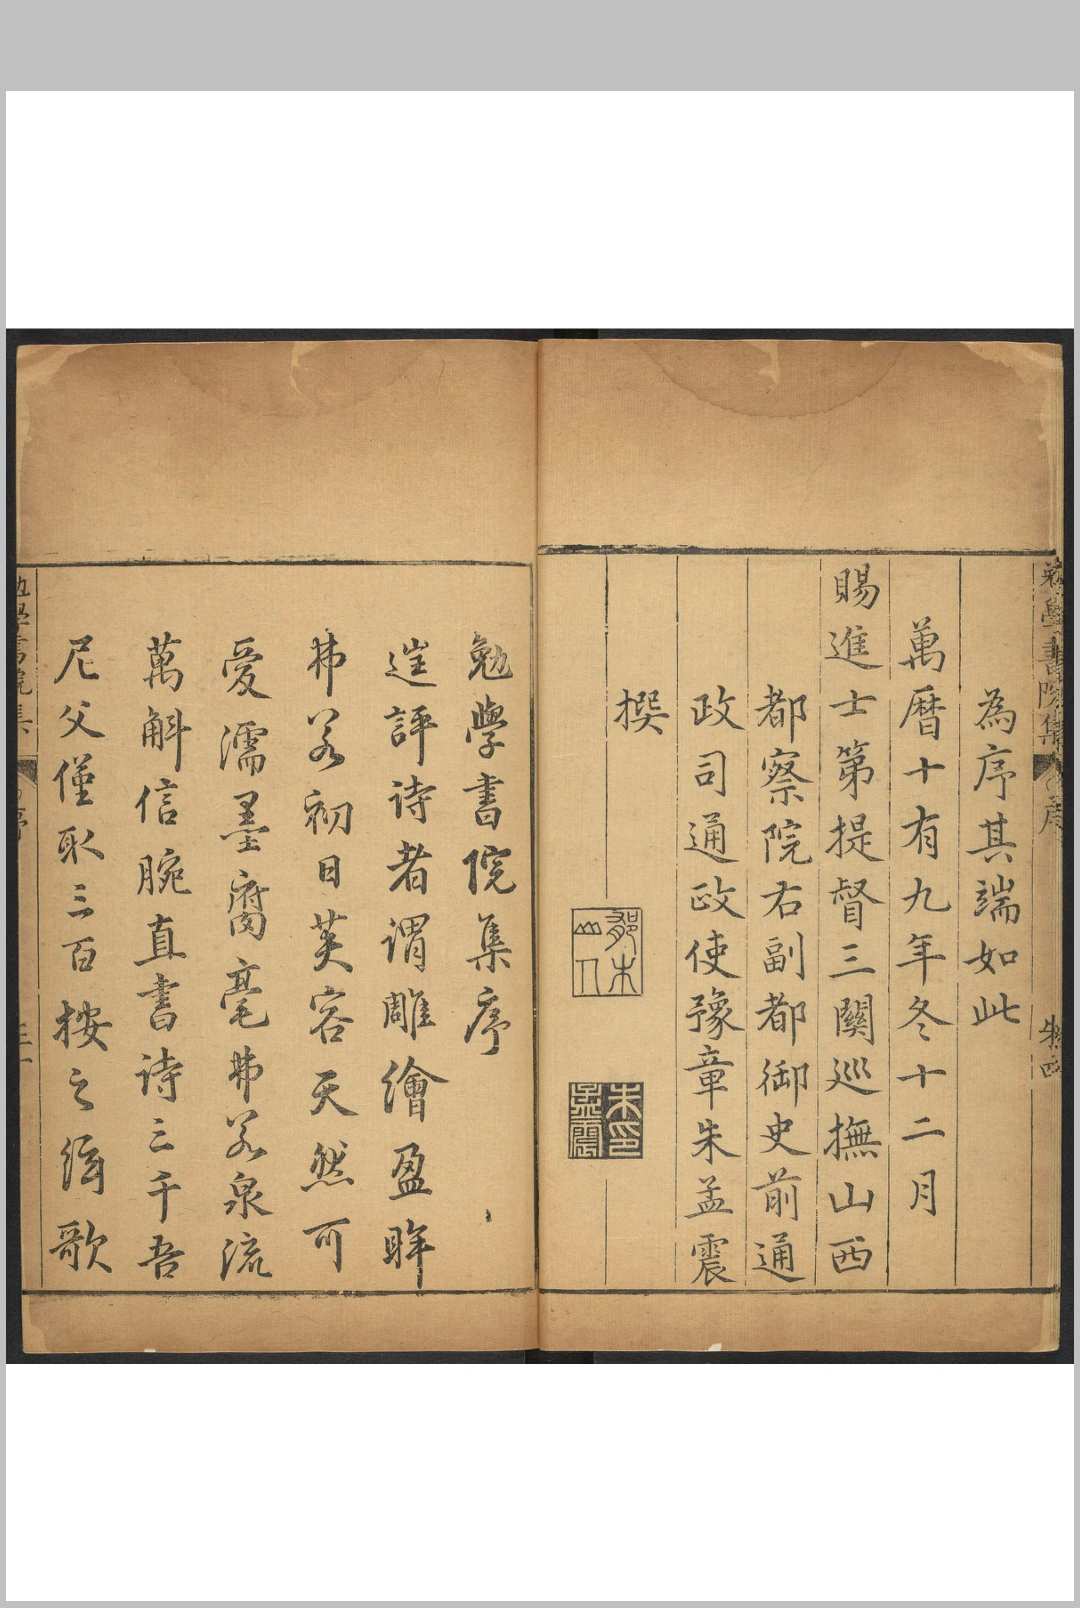 勉學書院集
為序其端如此
萬曆十有九年冬十二月
賜進士第提督三關巡撫山西
都察院右副都御史前通
政司通政使豫章朱孟震
撰
朱印孟震
勉學書院集序
邇評詩者謂雕繪盈眸
弗若初日芙容天然可
愛濡墨腐毫弗若泉流
萬斛信腕直書詩三千吾
尼父僅取三百按之絃歌
勉學書院集
序